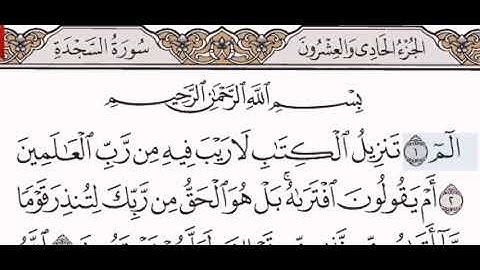 الجزء الحادي والعشرون
سورة السجدة
بِسْمِ اللَّهِ الرَّحْمَٰنِ الرَّحِيمِ
الٓمٓ ١ تَنزِيلُ الْكِتَابِ لَا رَيْبَ فِيهِ مِن رَّبِّ الْعَالَمِينَ
٢ أَمْ يَقُولُونَ افْتَرَاهُ ۚ بَلْ هُوَ الْحَقُّ مِن رَّبِّكَ لِتُنذِرَ قَوْمًا